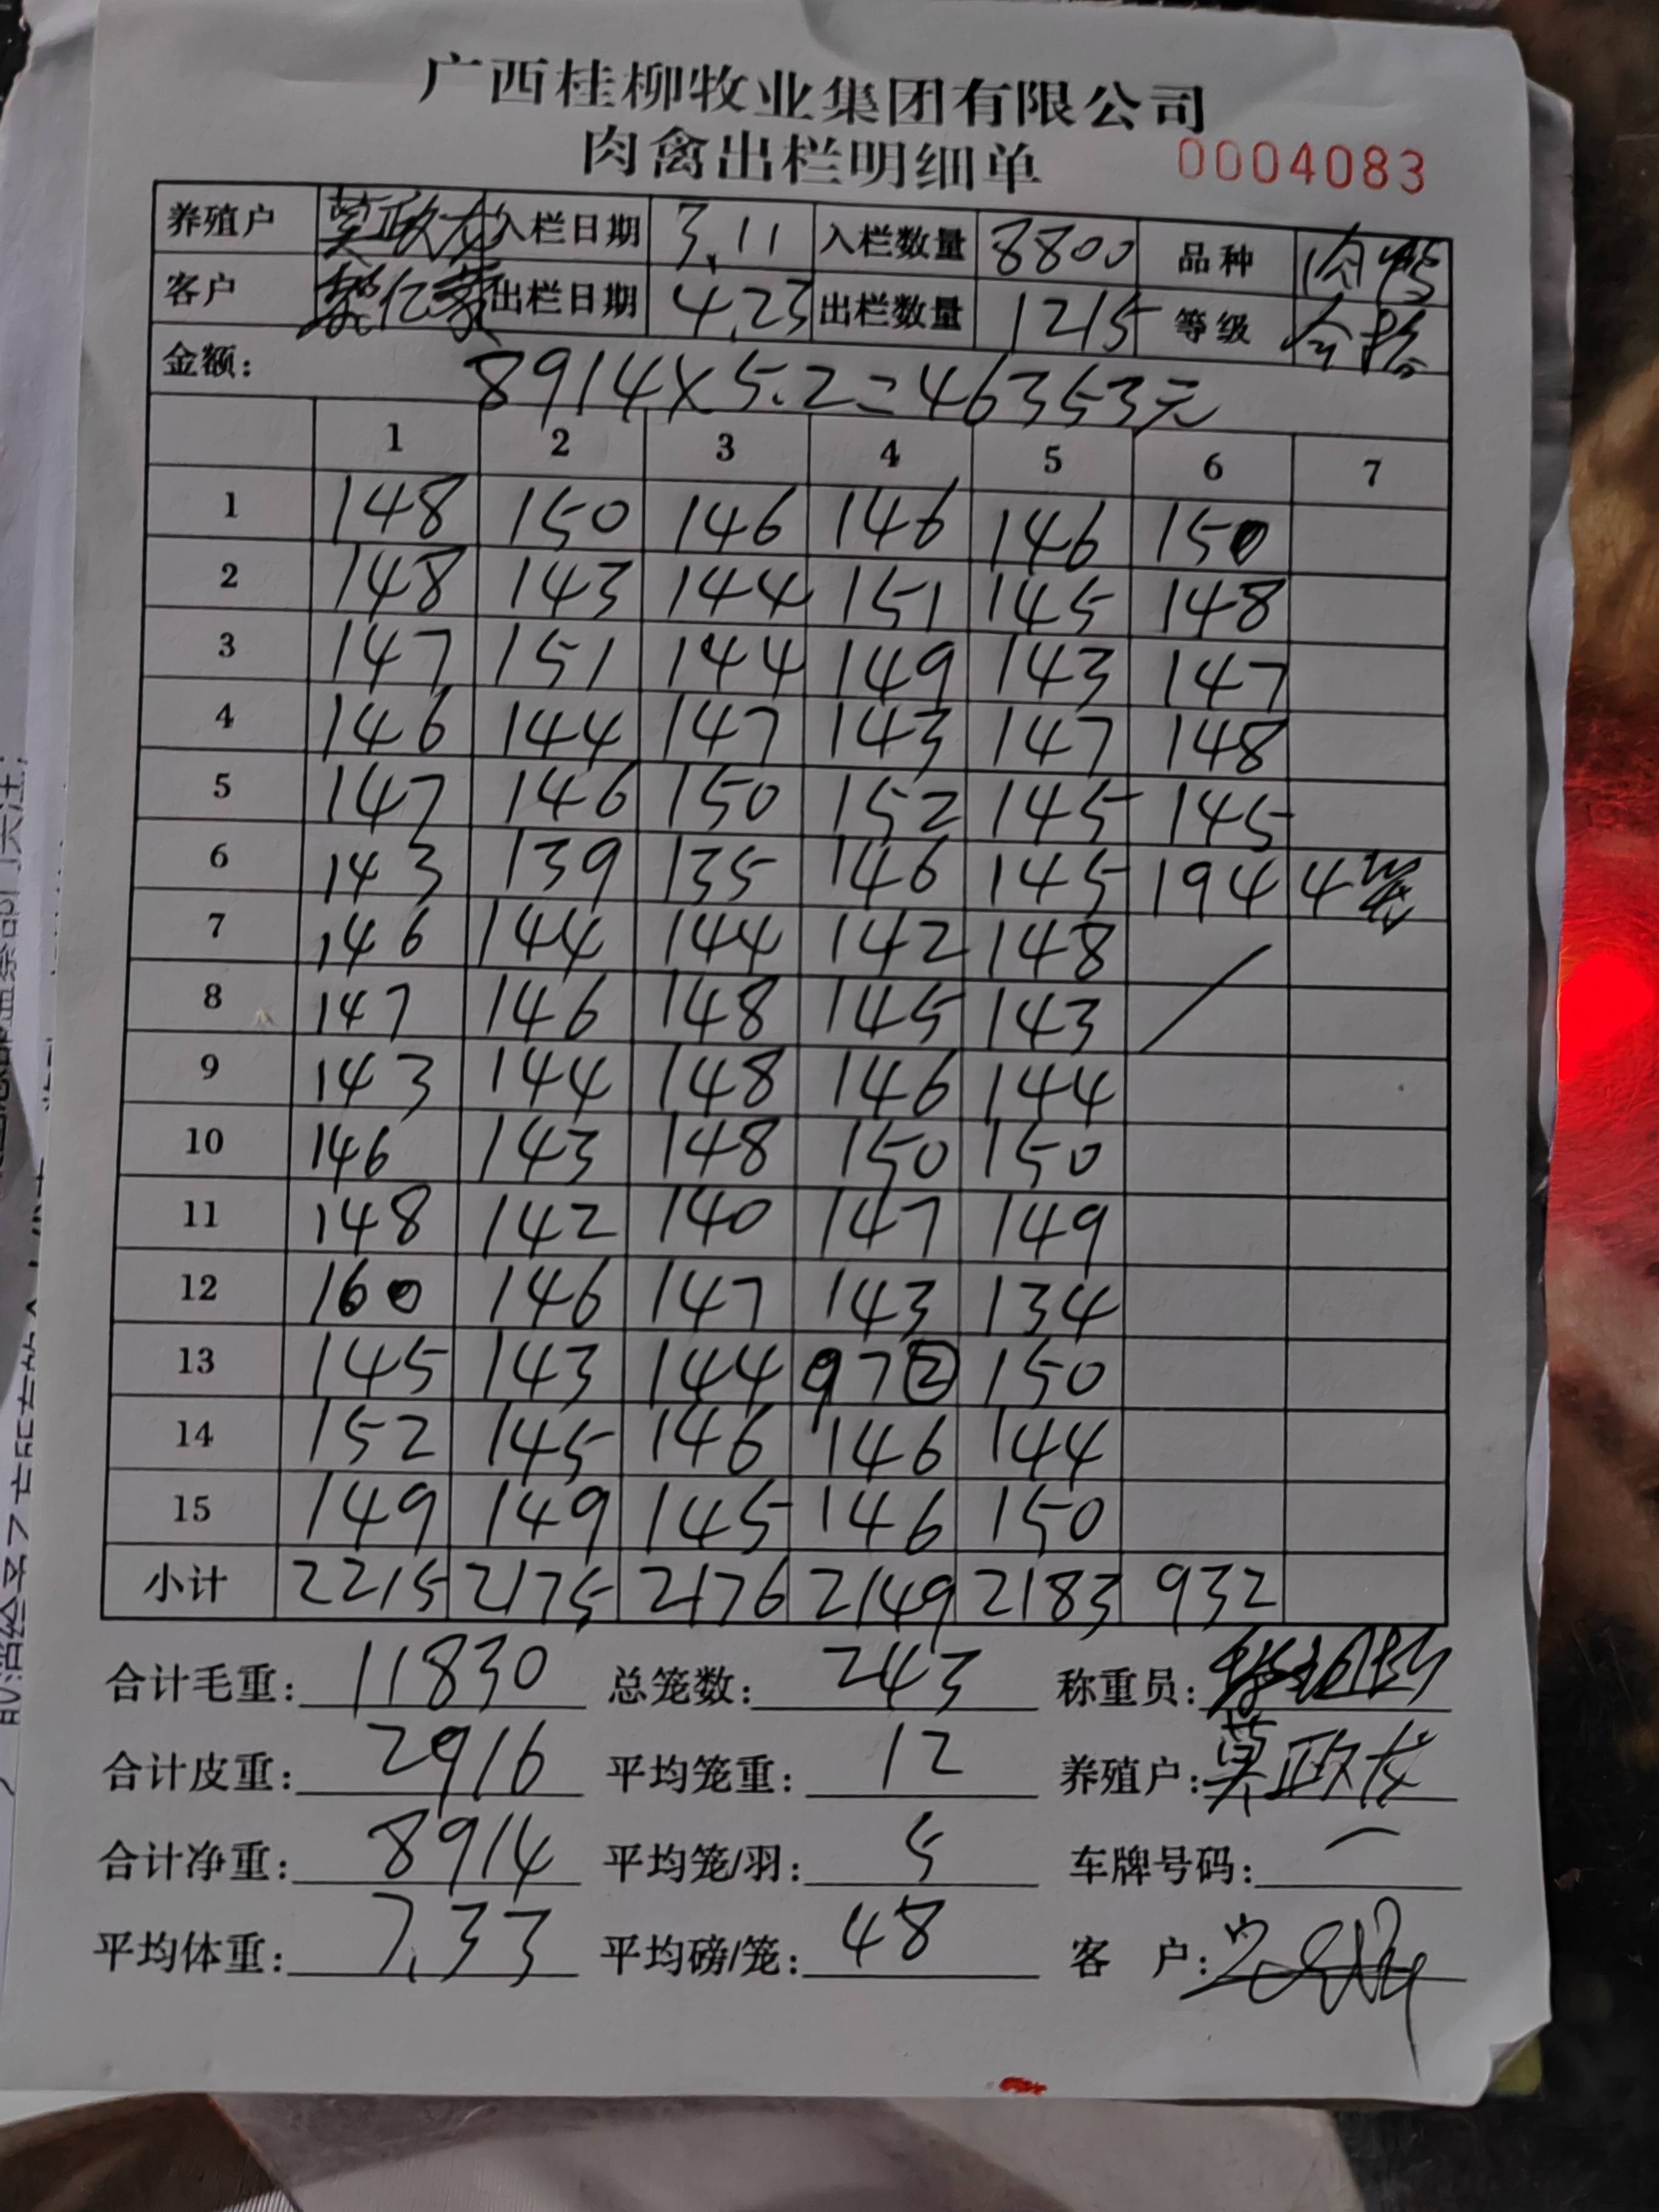 广西桂柳牧业集团有限公司
肉禽出栏明细单 0004083
养殖户 莫政龙 入栏日期 3.11 入栏数量 8800 品种 肉鸭
客户 出栏日期 4.23 出栏数量 1215 等级 合格
金额: 8914×5.2=46353元
1 2 3 4 5 6 7
1 148 150 146 146 146 150
2 148 143 144 151 145 148
3 147 151 144 149 143 147
4 146 144 147 143 147 148
5 147 146 150 152 145 145
6 143 139 135 146 145 194 4笼
7 146 144 144 142 148
8 147 146 148 145 143
9 143 144 148 146 144
10 146 143 148 150 150
11 148 142 140 147 149
12 160 146 147 143 134
13 145 143 144 97② 150
14 152 145 146 146 144
15 149 149 145 146 150
小计 2215 2175 2176 2149 2183 932
合计毛重: 11830 总笼数: 243 称重员:
合计皮重: 2916 平均笼重: 12 养殖户: 莫政龙
合计净重: 8914 平均笼/羽: 5 车牌号码:
平均体重: 7.33 平均磅/笼: 48 客 户: